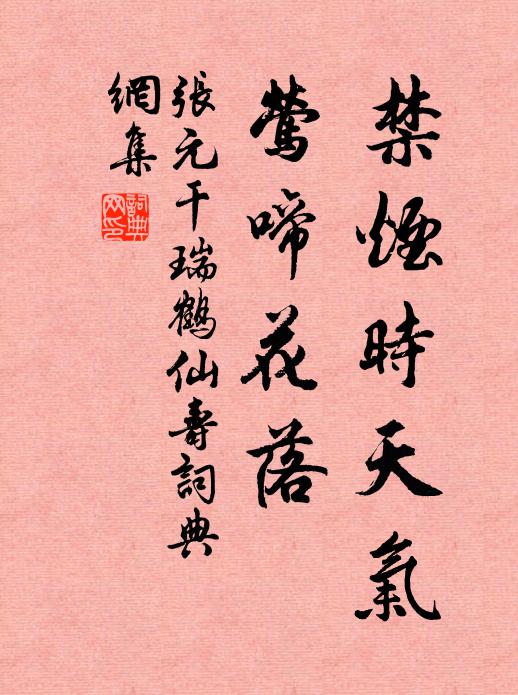 禁煙時天氣
鶯啼花落
張元干瑞鶴仙壽詞典
網集
詞典
网印